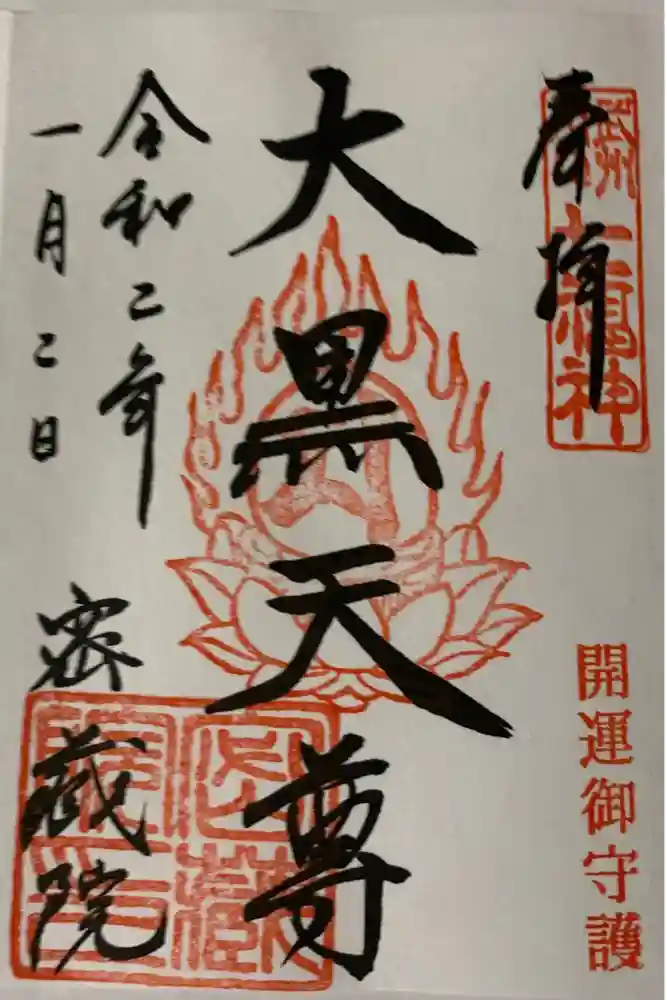 奉拝
七福神
開運御守護
大黒天尊
令和二年
一月二日
密蔵院